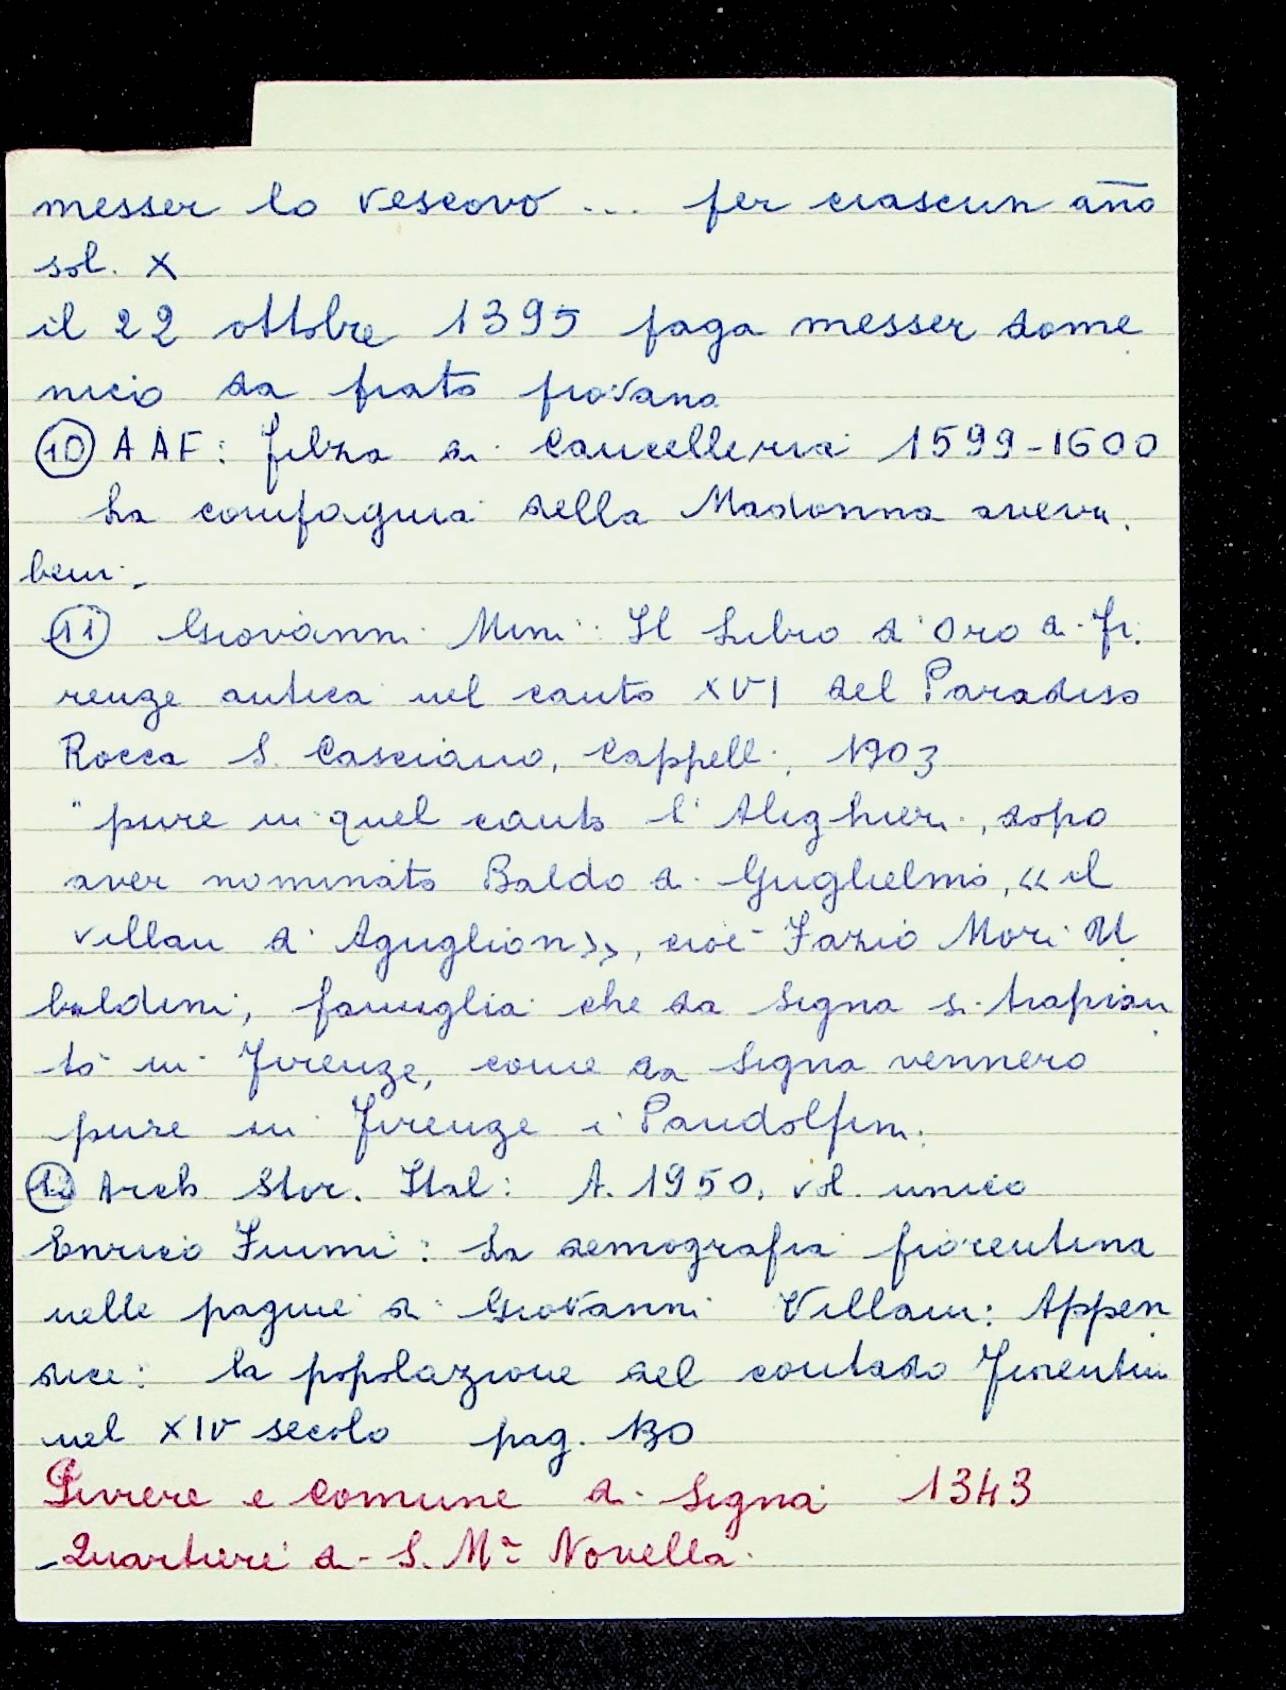 messer lo vescovo ... per ciascun año
sol. X
il 22 ottobre 1395 paga messer dome
nicio da prato piovano
(10) AAF: filza di Cancelleria 1599-1600
La compagnia della Madonna aveva
beni.
(11) Giovanni Mini: Il Libro d'Oro di Fi
renze antica nel canto XVI del Paradiso
Rocca S. Casciano, Cappelli, 1903
"pure in quel canto l'Alighieri, dopo
aver nominato Baldo di Guglielmo, «il
villan d'Aguglion», cioè Fazio Mori U
baldini, famiglia che da Signa si trapian
tò in Firenze, come da Signa vennero
pure in Firenze i Pandolfini.
Arch. Stor. Ital: A. 1950, vol. unico
Enrico Fiumi: La demografia fiorentina
nelle pagine di Giovanni Villani: Appen
dice: la popolazione del contado fiorentin
nel XIV secolo pag. 130
Piviere e Comune di Signa 1343
Quartiere di S. Mª Novella.